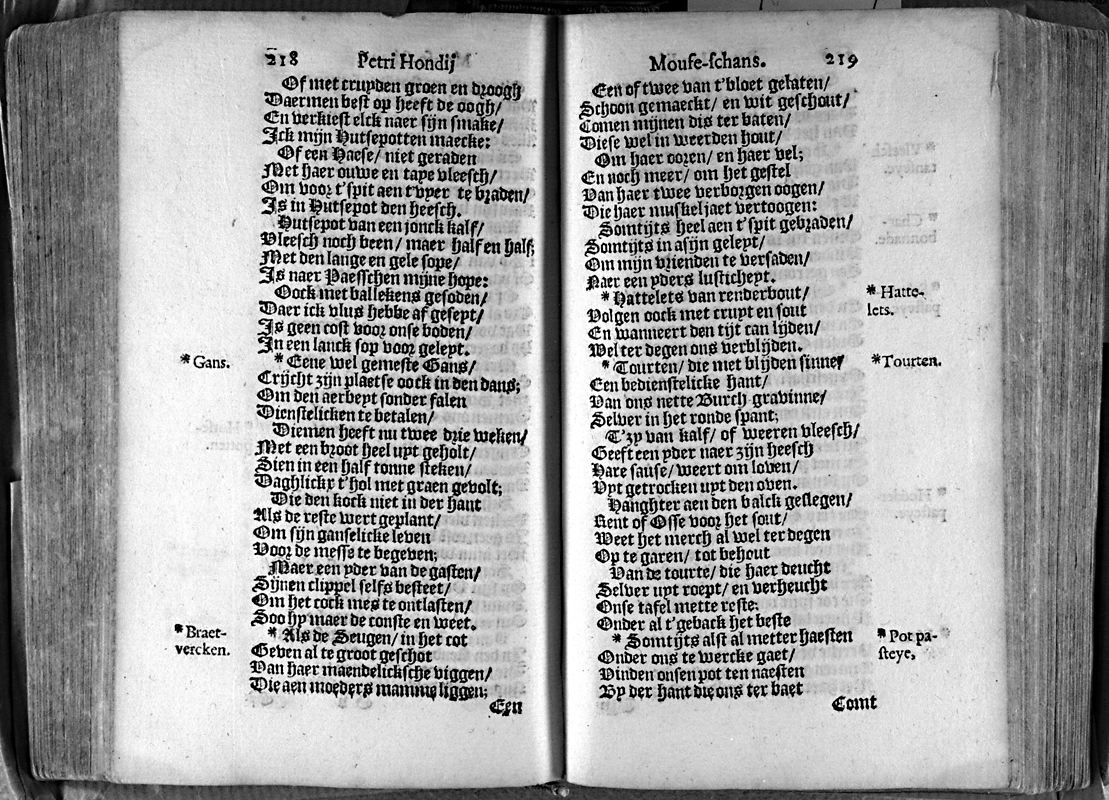 218 Petri Hondij
Of met cruyden groen en droogh
Daermen best op heeft de oogh/
En verkiest elck naer sijn smake/
Ick mijn Hutsepotten maecke:
Of een Haese/ niet geraden
Met haer ouwe en taye vleesch/
Om voor t'spit aen t'vyer te braden/
Is in Hutsepot den heesch.
Hutsepot van een jonck kalf/
Vleesch noch been/ maer half en half;
Met den lange en gele sope/
Is naer Paesschen mijne hope:
Oock met ballekens gesoden/
Daer ick vlus hebbe af geseyt/
Is geen cost voor onse boden/
In een lanck sop voor geleyt.
* Gans.
* Eene wel gemeste Gans/
Crijcht zijn plaetse oock in den dans;
Om den aerbeyt sonder falen
Dienstelicken te betalen/
Diemen heeft nu twee drie weken/
Met een broot heel uyt geholt/
Sien in een half tonne steken/
Daghlickx t'hol met graen gevolt;
Die den kock niet in der hant
Als de reste wert geplant/
Om sijn ganselicke leven
Voor de messe te begeven;
Maer een yder van de gasten/
Sijnen clippel selfs besteet/
Om het cock mes te ontlasten/
Soo hy maer de conste en weet.
* Braet-
vercken.
* Als de Seugen/ in het cot
Geven al te groot geschot
Van haer maendelicksche viggen/
Die aen moeders mamme liggen;
Een
Mouse-schans. 219
Een of twee van t'bloet gelaten/
Schoon gemaeckt/ en wit geschout/
Comen mijnen dis ter baten/
Diese wel in weerden hout/
Om haer ooren/ en haer vel;
En noch meer/ om het gestel
Van haer twee verborgen oogen/
Die haer muskeljaet vertoogen:
Somtijts heel aen t'spit gebraden/
Somtijts in asijn geleyt/
Om mijn vrienden te versaden/
Naer een yders lusticheyt.
* Hattelets van renderbout/
Volgen oock met cruyt en sout
En wanneert den tijt can lyden/
Wel ter degen ons verblyden.
* Hatte-
lets.
* Tourten/ die met blyden sinne/
Een bedienstelicke hant/
Van ons nette Burch gravinne/
Selver in het ronde spant;
* Tourten.
T'zy van kalf/ of weeren vleesch/
Geeft een yder naer zijn heesch
Hare sause/ weert om loven/
Uyt getrocken uyt den oven.
Hanghter aen den balck geslegen/
Rent of Osse voor het sout/
Weet het merch al wel ter degen
Op te garen/ tot behout
Van de tourte/ die haer deucht
Selver uyt roept/ en verheucht
Onse tafel mette reste;
Onder al t'geback het beste
* Somtijts alst al metter haesten
Onder ons te wercke gaet/
Vinden onsen pot ten naesten
By der hant die ons ter baet
* Pot pa-
steye,
Comt